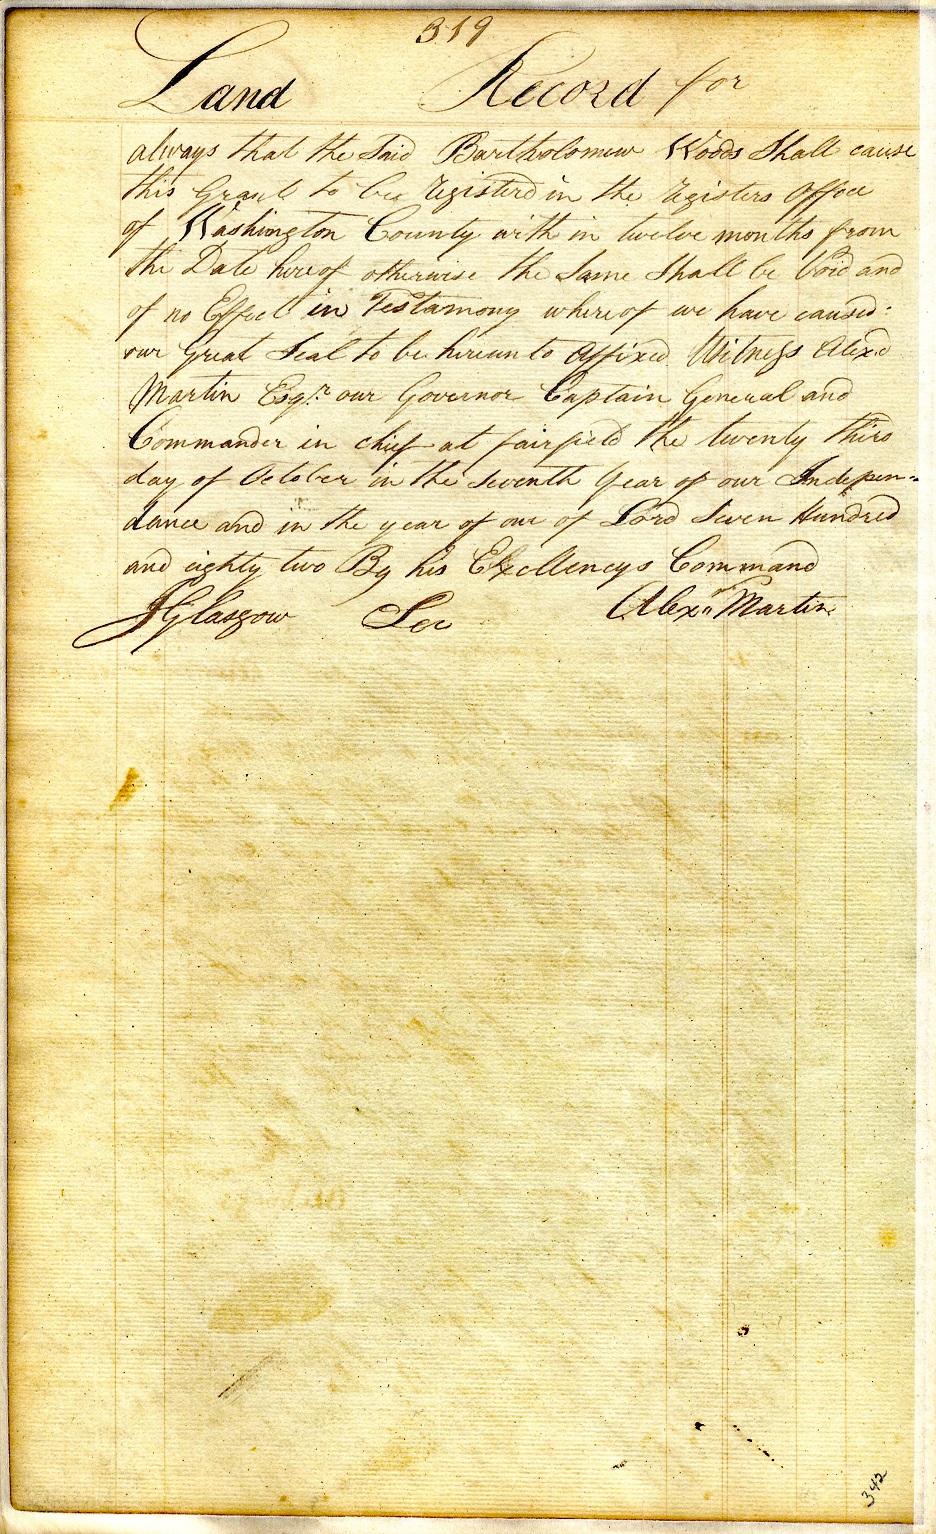 319
Land Record for
always that the Said Bartholomew Woods Shall cause
this Grant to bee registerd in the registers office
of Washington County with in twelve months from
the Date hereof otherwise the Same Shall be Void and
of no Effect in Testamony whereof we have caused
our great Seal to be hereunto affixed Witness Alexd
Martin Esqr. our Governor Captain General and
Commander in chief at fairfield the twenty third
day of October in the Seventh year of our Indepen=
dance and in the year of our of Lord Seven Hundred
and eighty two By his Exellencys Command
J Glasgow Sec Alexn Martin
342